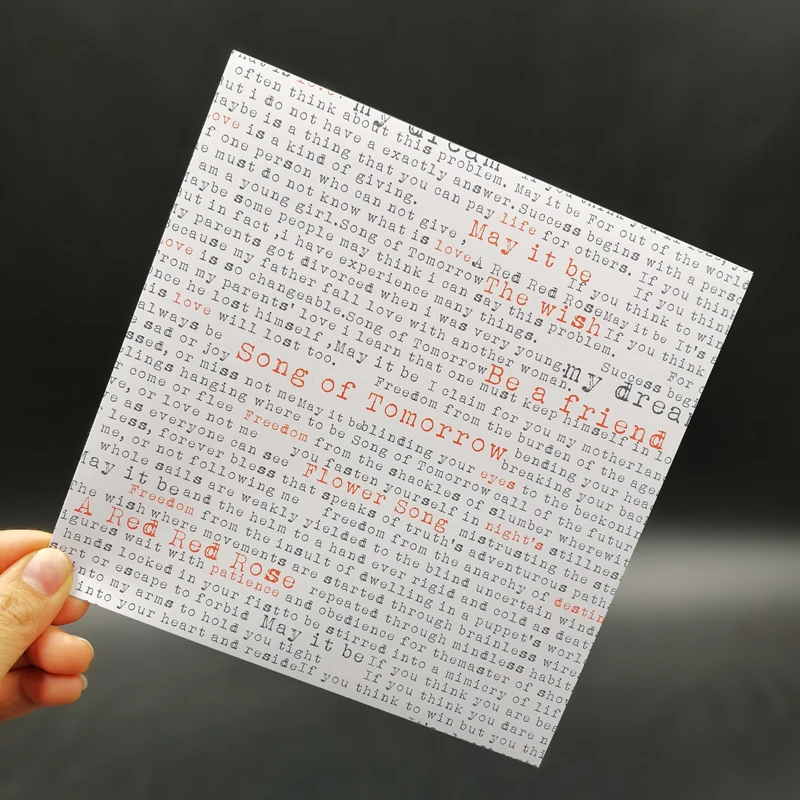 often think about this problem. May it be For out of the worl
ut i do not have a exactly answer.Success begins with a perso
aybe is a thing that you can pay life for others. If you think
ove is a kind of giving. May it be If you thin
f one person who can not give, A Red Red RoseMay it be It's
e must do not know what is love If you think to win
am a young girl.Song of Tomorrow The wish If you think
aybe some people may think i can say this problem. For
ut in fact ,i have experience many things. Success begi
y parents got divorced when i was very young. my drea
ecause my father fall love with another woman.
ove is so changeable.Song of Tomorrow Be a friend
rom my parents' love i learn that one must keep himself in lo
nce he lost himself ,May it be I claim for you my motherlan
is love will lost too. Freedom from the burden of the age
always be Song of Tomorrow bending your hea
e sad or joy breaking your bac
ssed, or miss not me May it be blinding your eyes to the beckonin
lings hanging where to be Song of Tomorrow call of the futur
r come or flee Freedom from the shackles of slumber wherewi
ve, or love not me you fasten yourself in night's stillnes
e as everyone can see Flower Song mistrusting the sta
less, forever bless that speaks of truth's adventurous path
me, or not following me freedom from the anarchy of destin
whole sails are weakly yielded to the blind uncertain wind
May it be and the helm to a hand ever rigid and cold as deat
The wish Freedom from the insult of dwelling in a puppet's worl
where movements are started through brainless wir
A Red Red Rose repeated through mindless habit
igures wait with patience and obedience for themaster of sho
hands locked in your fistto be stirred into a mimicry of lif
sert or escape to forbid May it be If you think you are bea
into my arms to hold you tight If you think you dare n
into your heart and resideIf you think to win but you thi